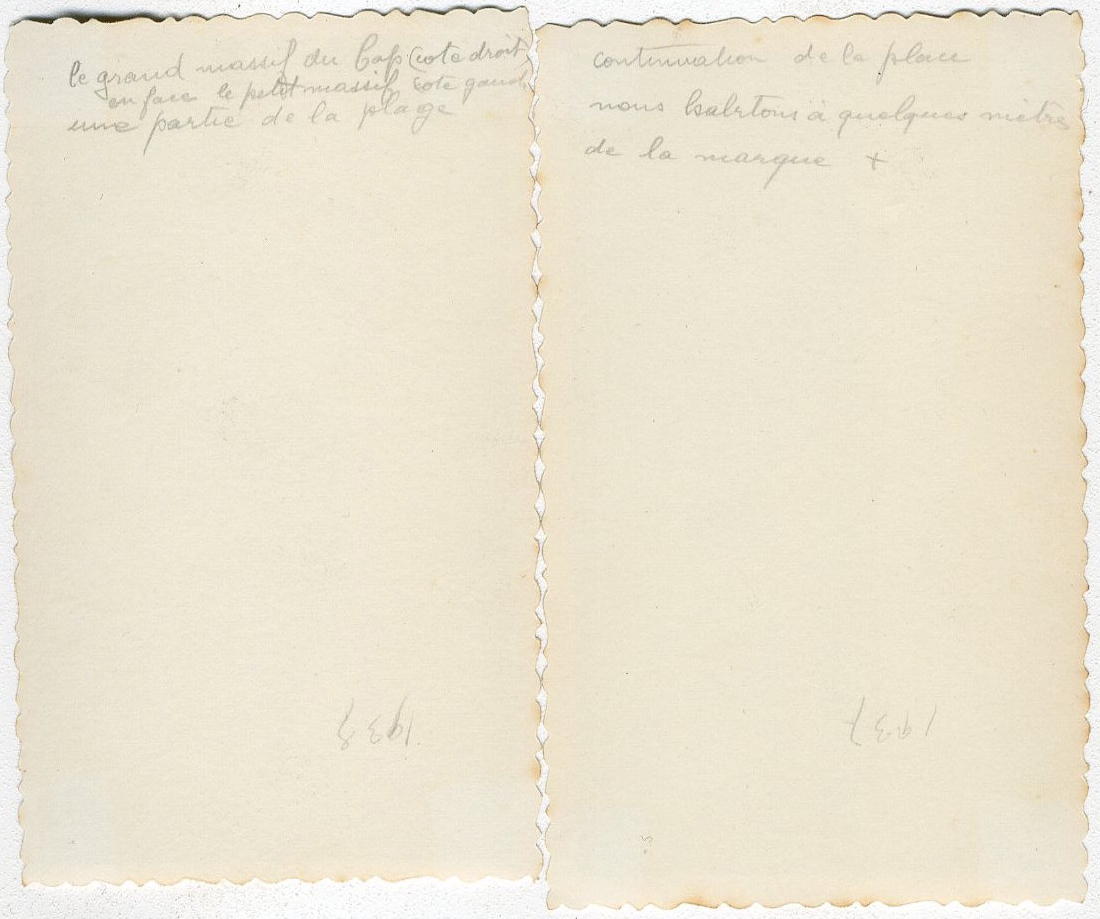 le grand massif du Cap (cote droit)
en face le petit massif cote gauch
une partie de la plage
1937
continuation de la place
nous habitons à quelques mètres
de la marque +
1937